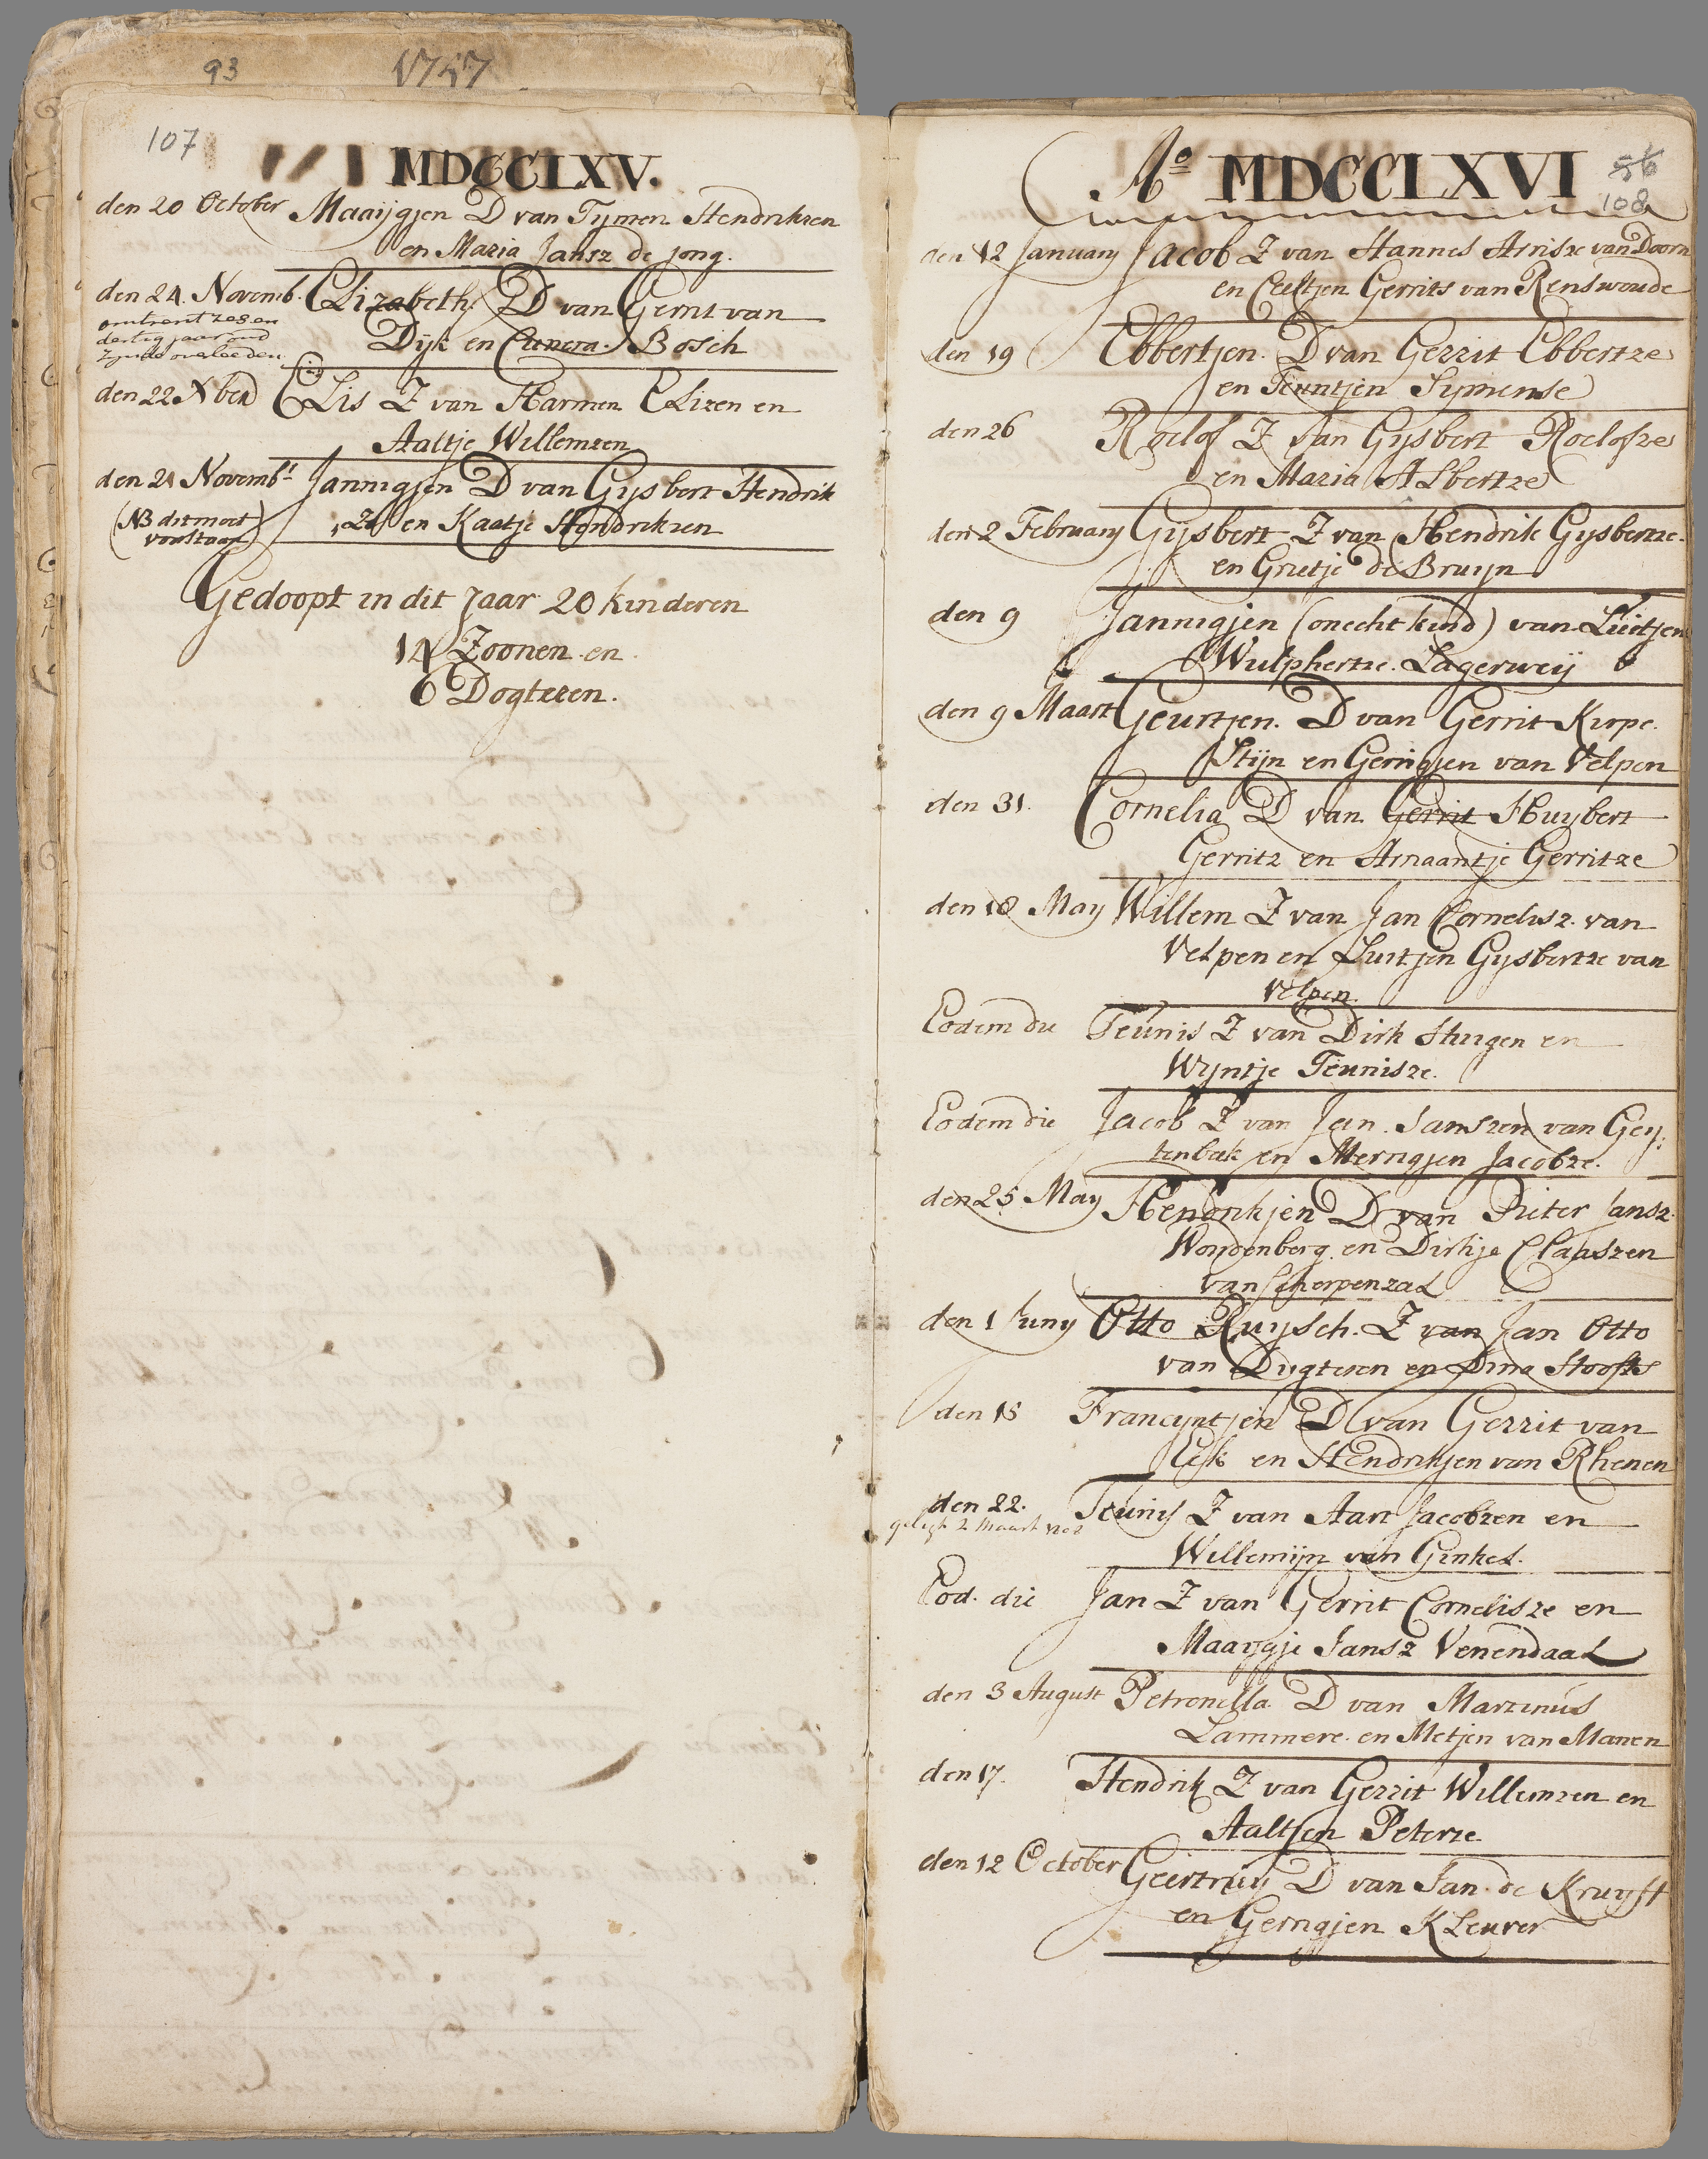 93 1757
107
MDCCLXV.
den 20 October Maaijgjen D van Tymen Hendriksen
en Maria Jansz de jong.
den 24. Novemb. Elizabeth D van Gerrit van
omtrent zes en
dertig jaar oud
zynde overleeden
Dijk en Cunera Bosch
den 22 Xber Elis Z van Harmen Elizen en
Aaltje Willemzen
den 21 Novembr Jannigjen D van Gysbert Hendrik
(NB dit moet
voorstaan)
Zn en Kaatje Hendriksen
Gedoopt in dit Jaar 20 kinderen
14 Zoonen en
6 Dogteren.
Ao MDCCLXVI
56
108
den 12 January Jacob Z van Hannes Arrisze van Doorn
en Ceeltjen Gerrits van Renswoude
den 19 Ebbertjen. D van Gerrit Ebbertze
en Teuntjen Symense
den 26 Roelof Z van Gysbert Roelofze
en Maria Albertze
den 2 February Gysbert Z van Hendrik Gysbertze
en Grietje de Bruyn
den 9 Jannigjen (onecht kind) van Luitjen
Wulphertze Lagerweij
den 9 Maart Geurtjen. D van Gerrit Kirpe.
Stijn en Gerrigjen van Velpen
den 31. Cornelia D van Gerrit Huybert
Gerritz en Arnaantje Gerritze
den 18 May Willem Z van Jan Cornelisz. van
Velpen en Luitjen Gysbertze van
Velpen
Eodem die Teunis Z van Dirk Huigen en
Wyntje Teunisze.
Eodem die Jacob Z van Jan Janszen van Gey:
tenbeek en Merrigjen Jacobze.
den 25 May Hendrikjen D van Pieter Jansz.
Woudenberg en Dirkje Claaszen
van Scherpenzeel
den 1 Juny Otto Ruysch. Z van Jan Otto
van Dugteren en Dina Hoofts
den 15 Francyntjen D van Gerrit van
Eck en Hendrikjen van Rhenen
den 22. Teunis Z van Aart Jacobzen en
Willemijn van Ginkel.
Eod. die Jan Z van Gerrit Cornelisze en
Maaijgje Jansz Venendaal
den 3 August Petronella D van Martinus
Lammere en Metjen van Manen
den 17. Hendrik Z van Gerrit Willemzen en
Aaltjen Peterze
den 12 October Geertruy D van Jan de Kruyft
en Gerrigjen Kleuver